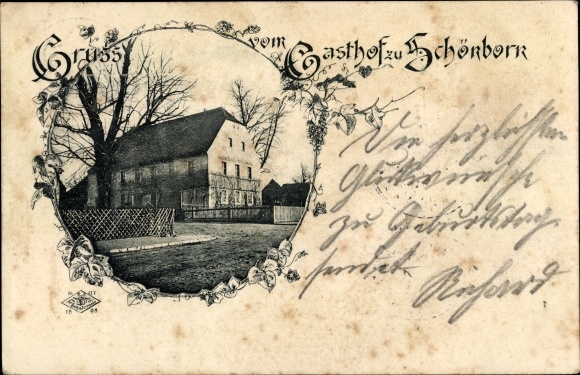 Gruss vom Gasthof zu Schönborn
Die herzlichsten
Glückwünsche
zu Geburtstag
sendet
Richard
18 98